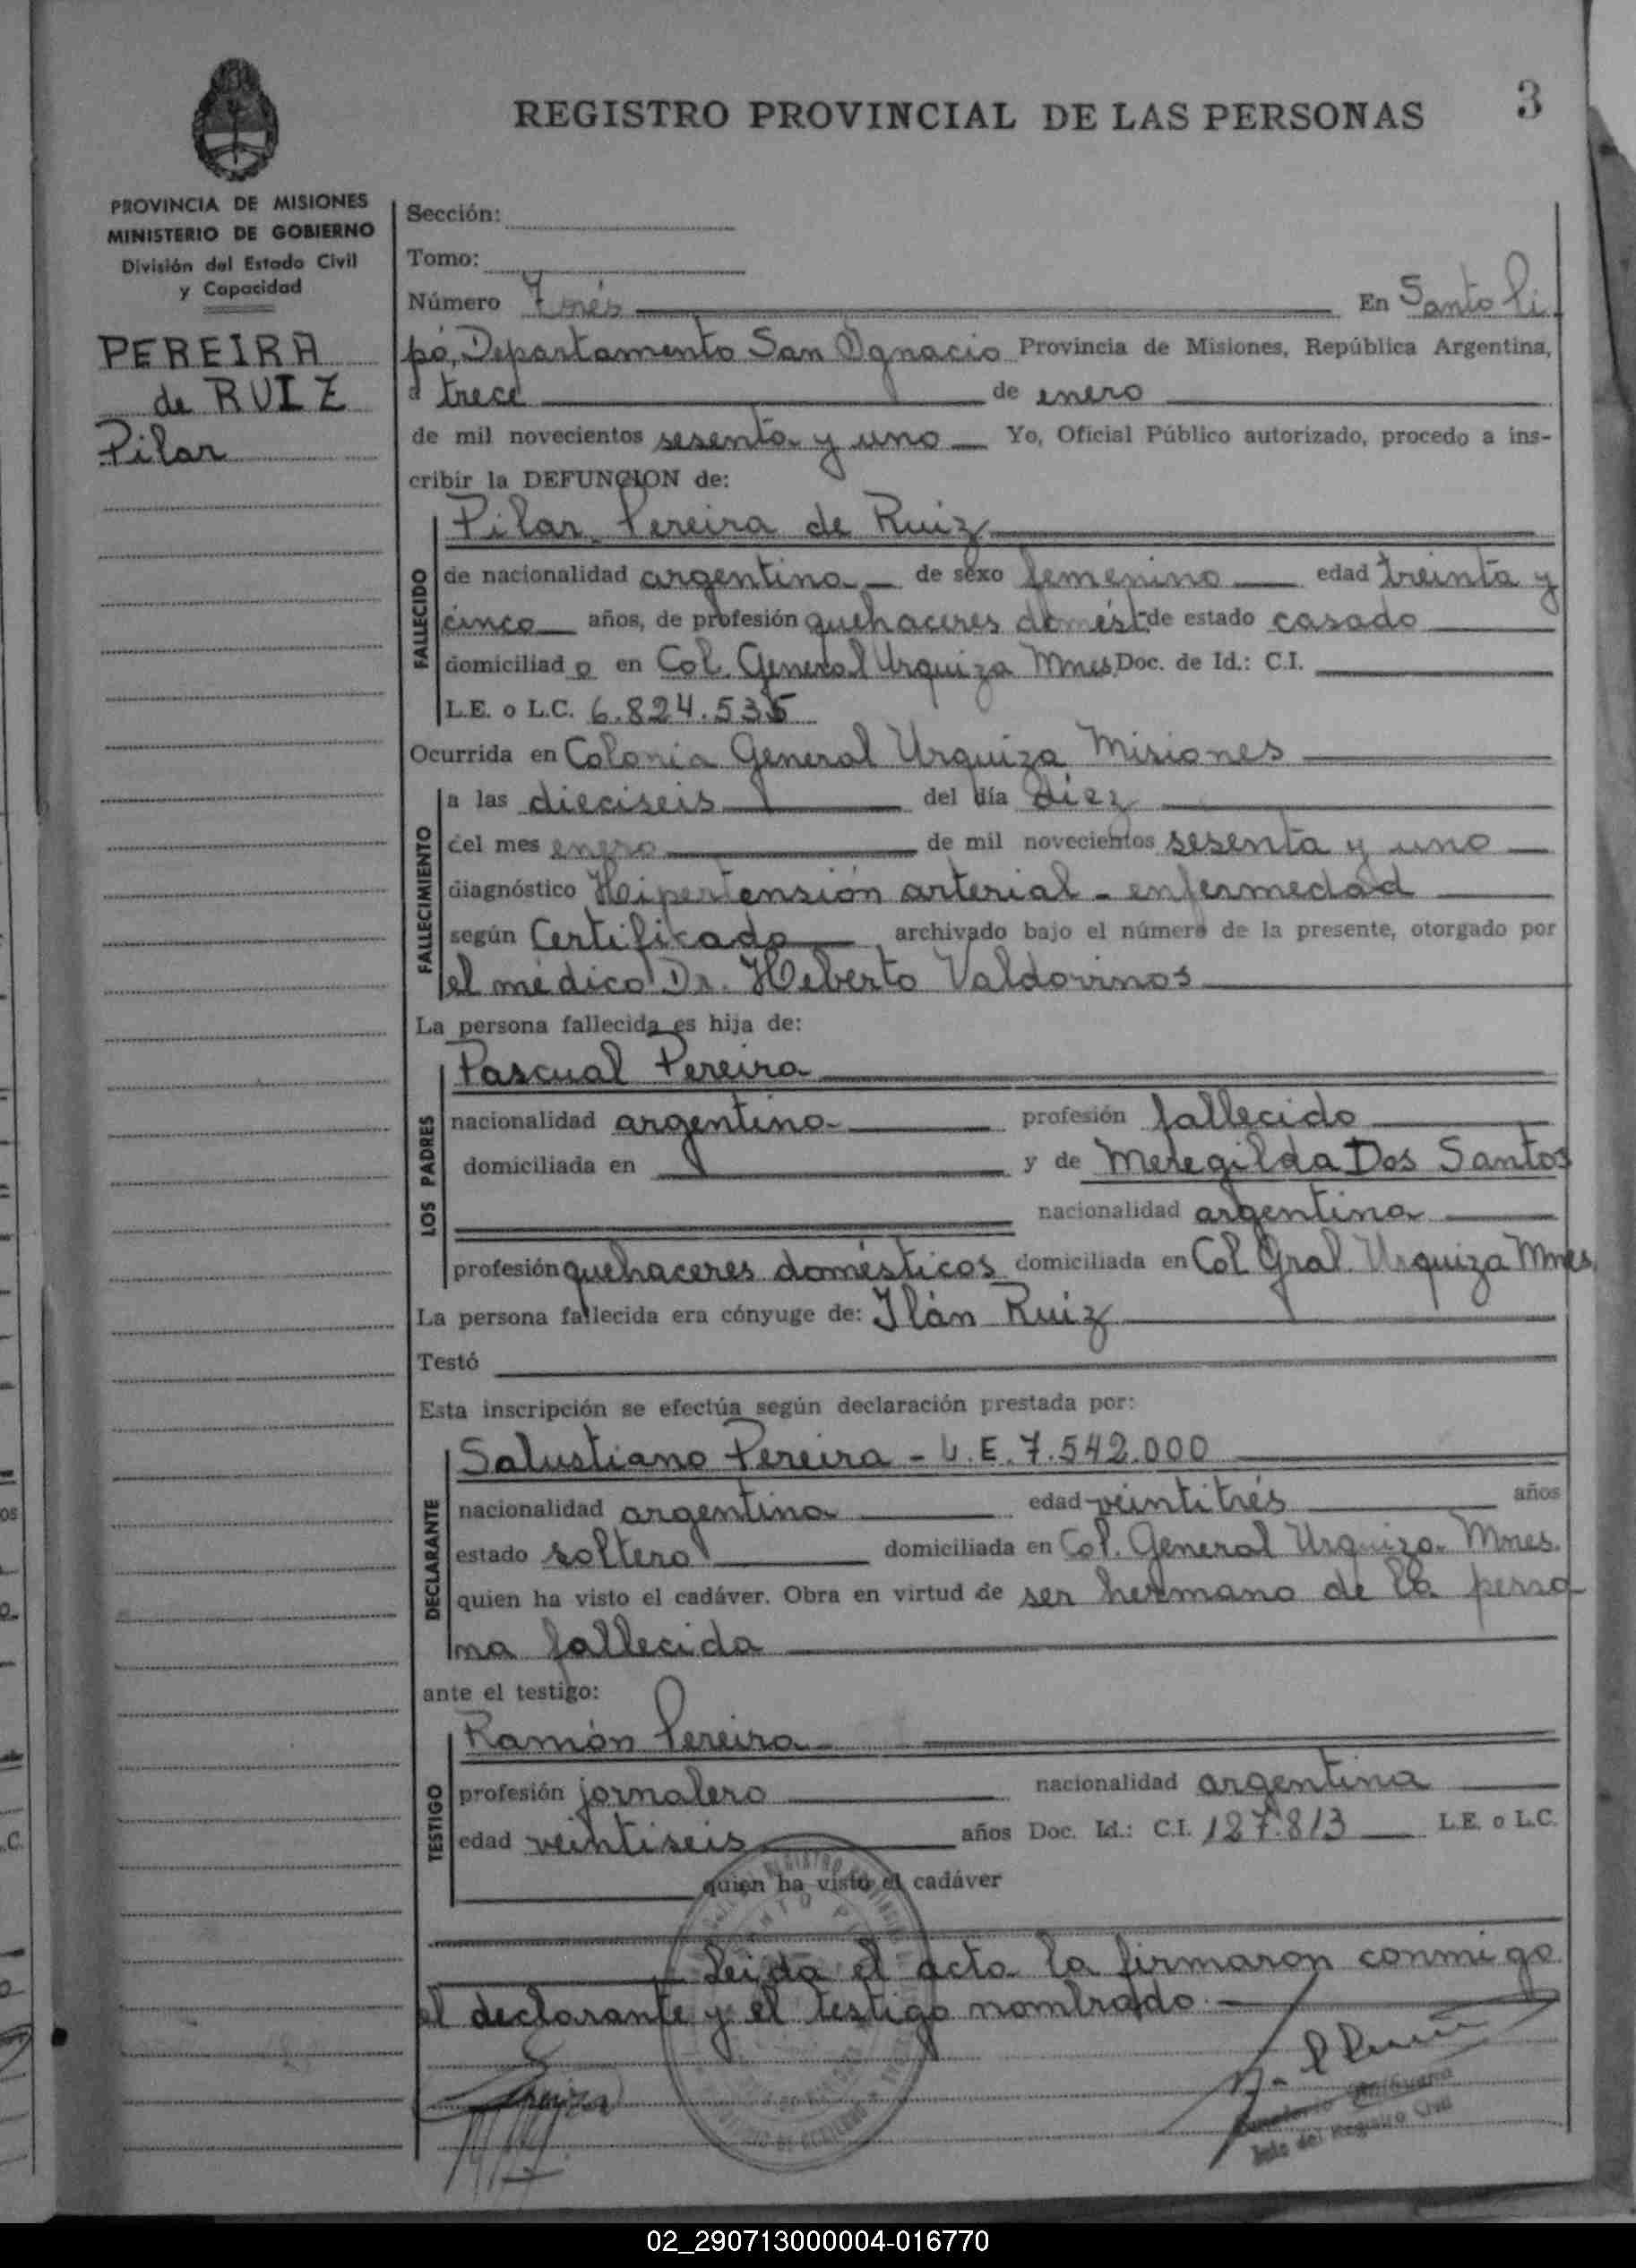 REGISTRO PROVINCIAL DE LAS PERSONAS 3
PROVINCIA DE MISIONES
MINISTERIO DE GOBIERNO
División del Estado Civil
y Capacidad
PEREIRA
de RUIZ
Pilar
Sección:
Tomo:
Número Tres En Santo Pi
pó, Departamento San Ignacio Provincia de Misiones, República Argentina,
a trece de enero
de mil novecientos sesenta y uno Yo, Oficial Público autorizado, procedo a ins-
cribir la DEFUNCION de:
Pilar Pereira de Ruiz
FALLECIDO
de nacionalidad argentina de sexo femenino edad treinta y
cinco años, de profesión quehaceres domést. de estado casado
domiciliado en Col. General Urquiza Mnes Doc. de Id.: C.I.
L.E. o L.C. 6.824.535
Ocurrida en Colonia General Urquiza Misiones
FALLECIMIENTO
a las dieciseis del día diez
del mes enero de mil novecientos sesenta y uno
diagnóstico Heipertensión arterial - enfermedad
según Certificado archivado bajo el número de la presente, otorgado por
el médico Dr. Heberto Valdovinos
La persona fallecida es hija de:
LOS PADRES
Pascual Pereira
nacionalidad argentino profesión fallecido
domiciliada en y de Meregilda Dos Santos
nacionalidad argentina
profesión quehaceres domésticos domiciliada en Col Gral. Urquiza Mnes.
La persona fallecida era cónyuge de: Ilán Ruiz
Testó
Esta inscripción se efectúa según declaración prestada por:
DECLARANTE
Salustiano Pereira - L.E. 7.542.000
nacionalidad argentina edad veintitrés años
estado soltero domiciliada en Col. General Urquiza Mnes.
quien ha visto el cadáver. Obra en virtud de ser hermano de la perso
na fallecida
ante el testigo:
TESTIGO
Ramón Pereira
profesión jornalero nacionalidad argentina
edad veintiseis años Doc. Id.: C.I. 127.813 L.E. o L.C.
quien ha visto el cadáver
Leida el acta la firmaron conmigo
el declarante y el testigo nombrado.-
Jefe del Registro Civil
02_290713000004-016770